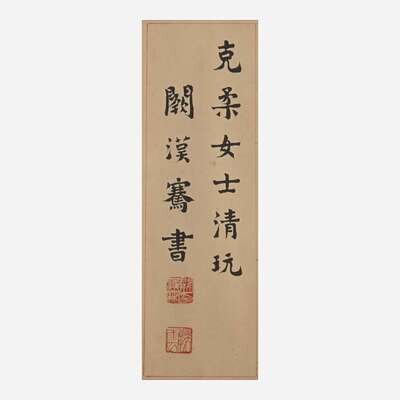 克柔女士清玩
闕漢騫書